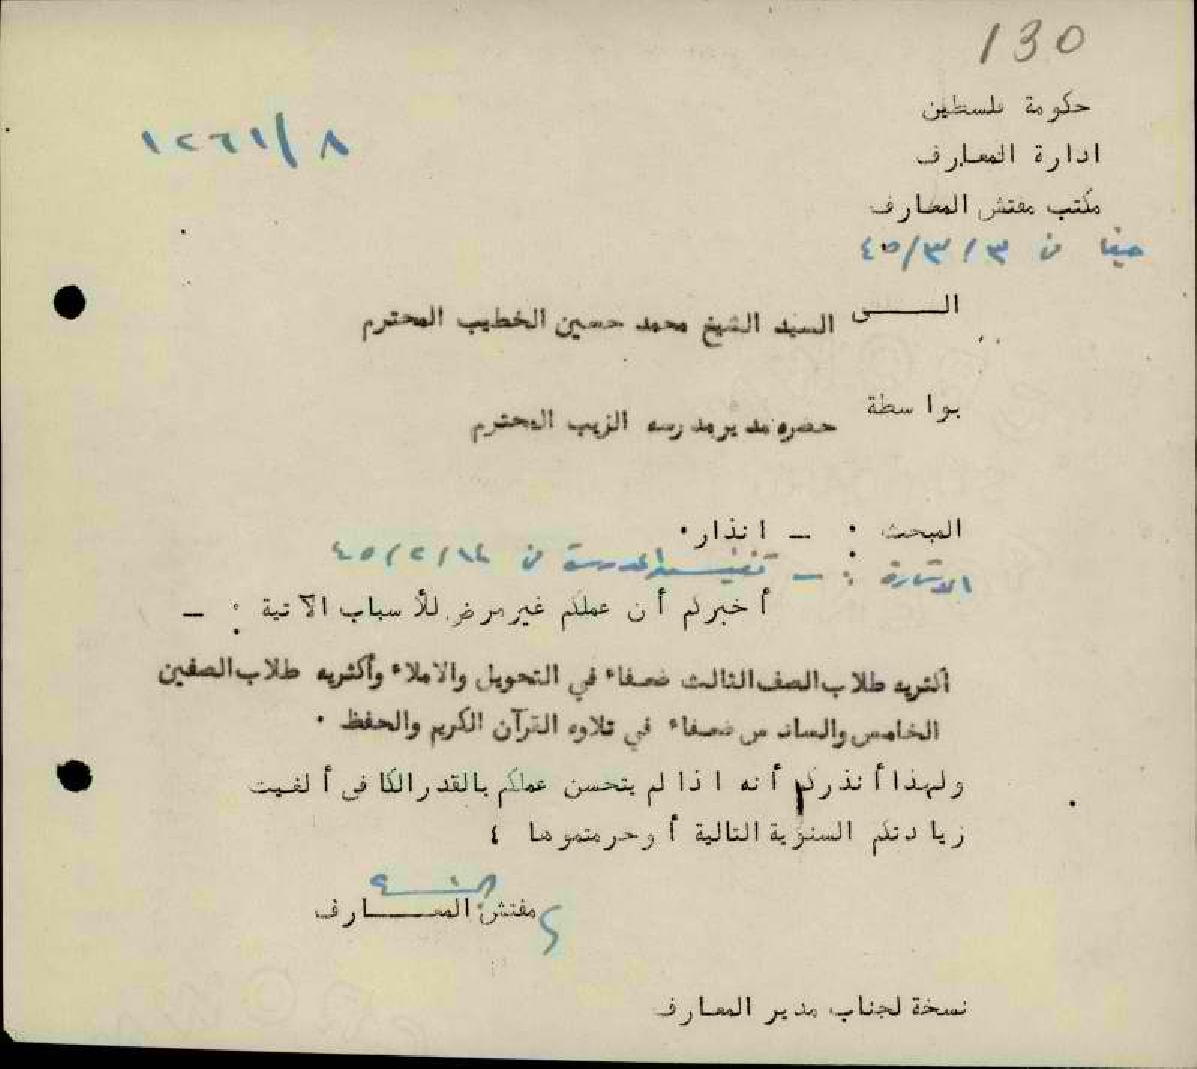 130
حكومة فلسطين
١٢٦١/٨
ادارة المعارف
مكتب مفتش المعارف
حيفا في ٤٥/٣/٣
الـــى السيد الشيخ محمد حسين الخطيب المحترم
بواسطة حضره مدير مدرسه الزيب المحترم
المبحث : ــ انذار.
الاشارة : ــ تفتيش المدرسة في ٤٥/٢/١٤
أخبركم أن عملكم غير مرض للأسباب الآتية : ــ
أكثريه طلاب الصف الثالث ضعفاء في التحويل والاملاء وأكثريه طلاب الصفين
الخامس والسادس ضعفاء في تلاوه القرآن الكريم والحفظ .
ولهذا أنذركم أنه اذا لم يتحسن عملكم بالقدر الكافى ألغيت
زيادتكم السنوية التالية أو حرمتموها ؛
مفتش المعـــارف
نسخة لجناب مدير المعارف